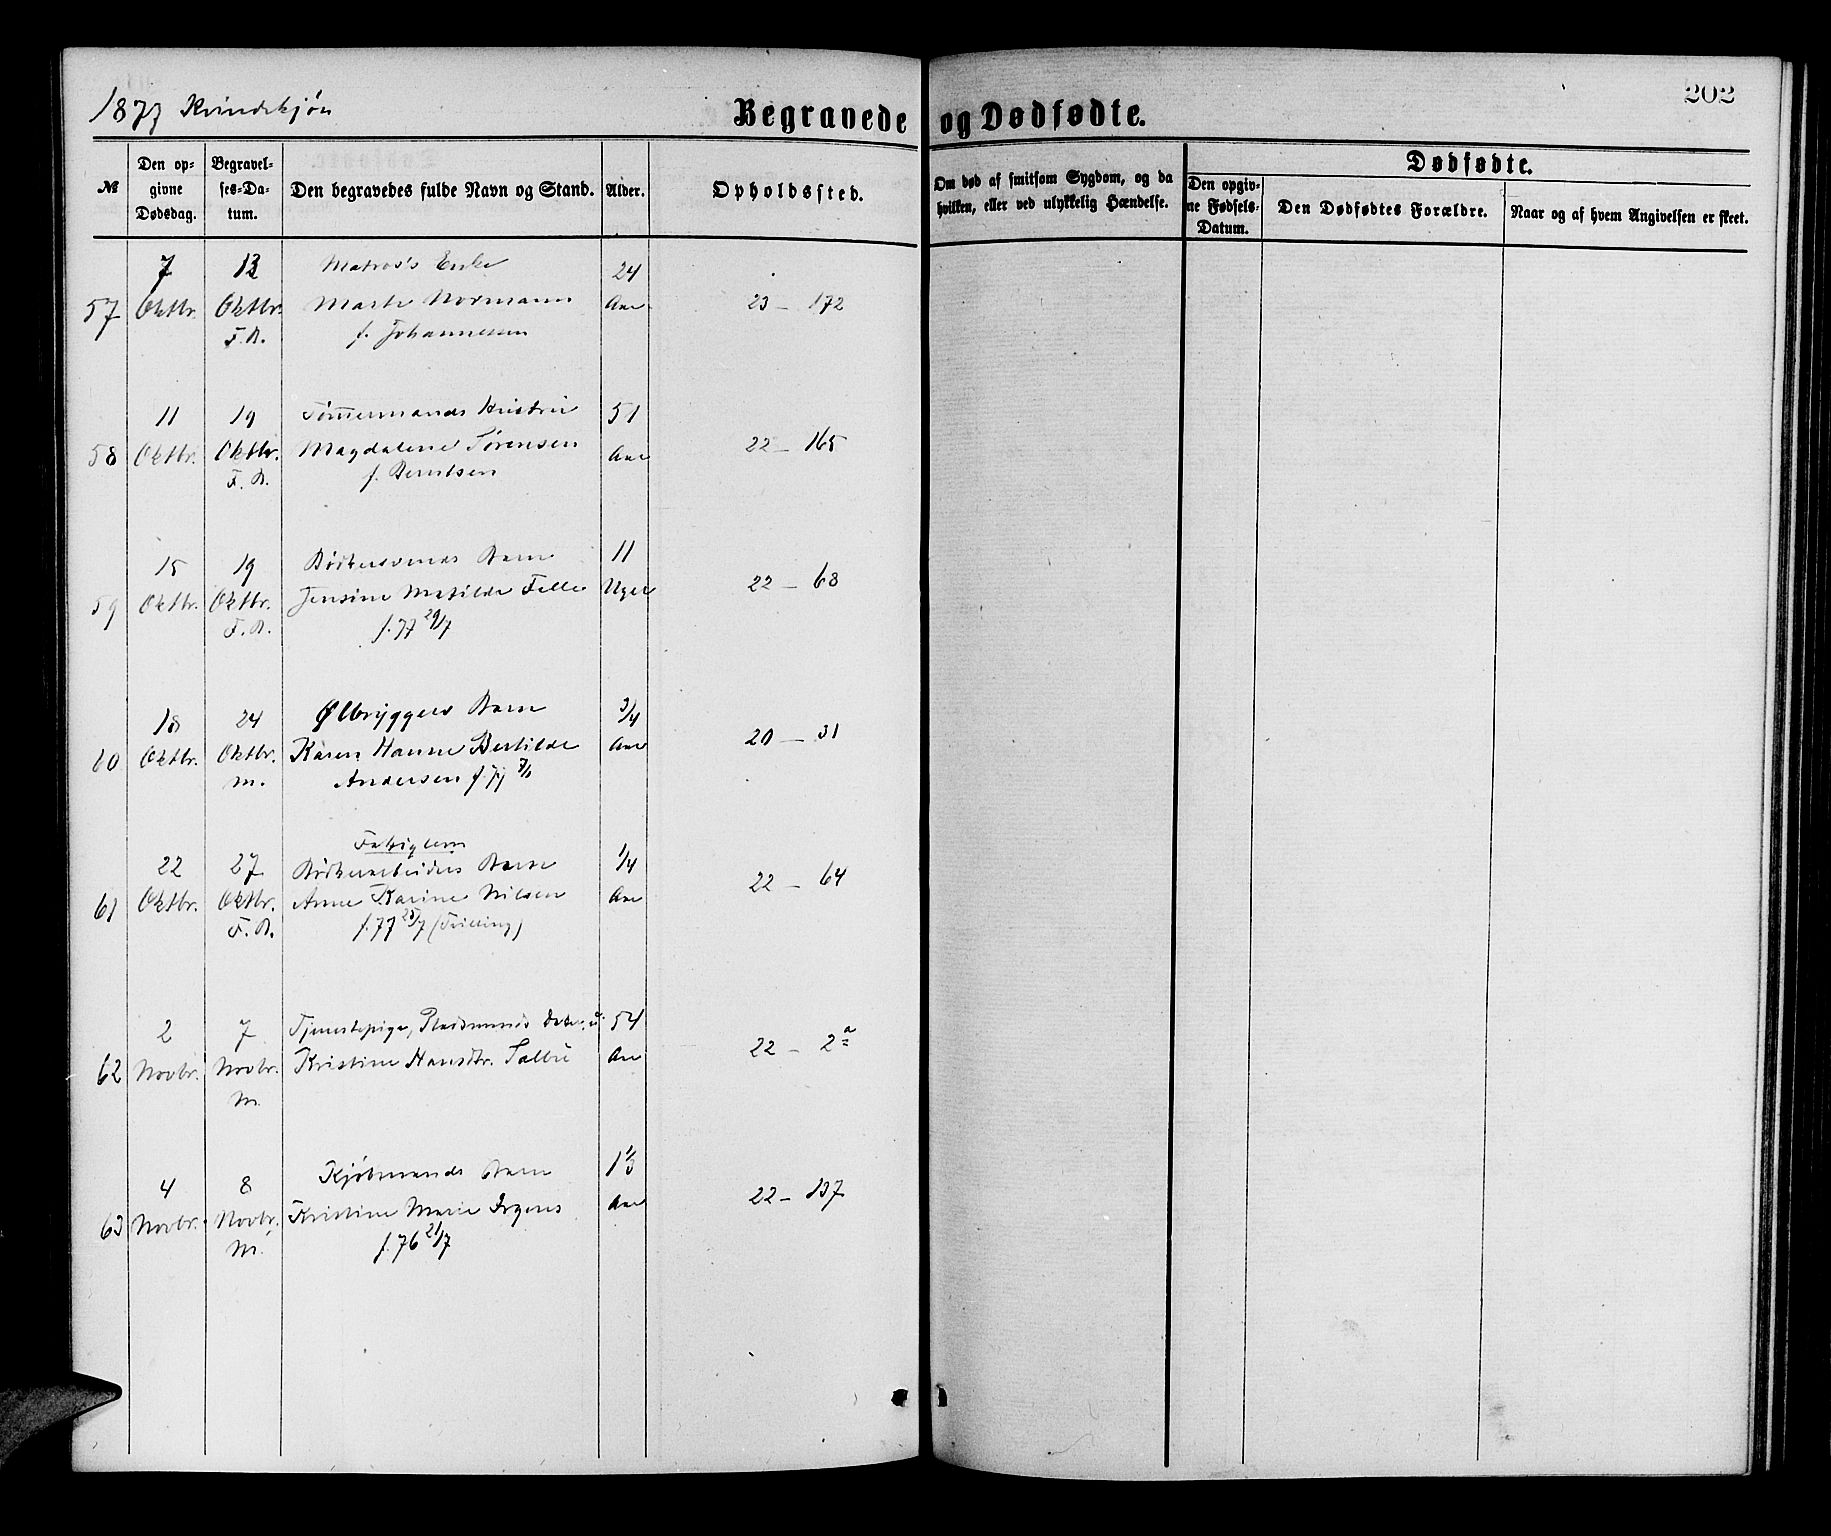 1877 Kvindekjøn
Begravede og Dødfødte.
202
№
Den opgivne Dødsdag.
Begravelses-Datum.
Den begravedes fulde Navn og Stand.
Alder.
Opholdssted.
Om død af smitsom Sygdom, og da hvilken, eller ved ulykkelig Hændelse.
Dødfødte.
Den opgivne Fødsels-Datum.
Den Dødfødtes Forældre.
Naar og af hvem Angivelsen er skeet.
7 13 Matros's Enke 24
57 Oktbr. Oktbr. Marte Normann Aar 23 - 172
F.B. f. Johannesen
11 19 Tømmermands Hustru 51
58 Oktbr. Oktbr. Magdalene Sørensen Aar 22 - 165
F.B. f. Berntsen
15 19 Bødkersvends Barn 11
59 Oktbr. Oktbr. Jensine Matilde Felle Uger 22 - 68
F.B. f. 77 29/7
18 24 Ølbryggers Barn 3/4
60 Oktbr. Oktbr. Karen Hanne Bertilde Aar 20 - 31
m. Andersen f. 77
Fattiglem
22 27 Bødkerarbeiders Barn 1/4
61 Oktbr. Oktbr. Anne Karine Nilsen Aar 22 - 64
F.B. f. 77 25/7 (Trilling)
2 7 Tjenestepige, Pladsmands Datter, u. 54
62 Novbr. Novbr. Kristine Hansdtr. Aar 22 - 2a
m.
4 8 Kjøbmands Barn 1 1/3
63 Novbr. Novbr. Kristine Marie Irgens Aar 22 - 137
m. f. 76 21/7